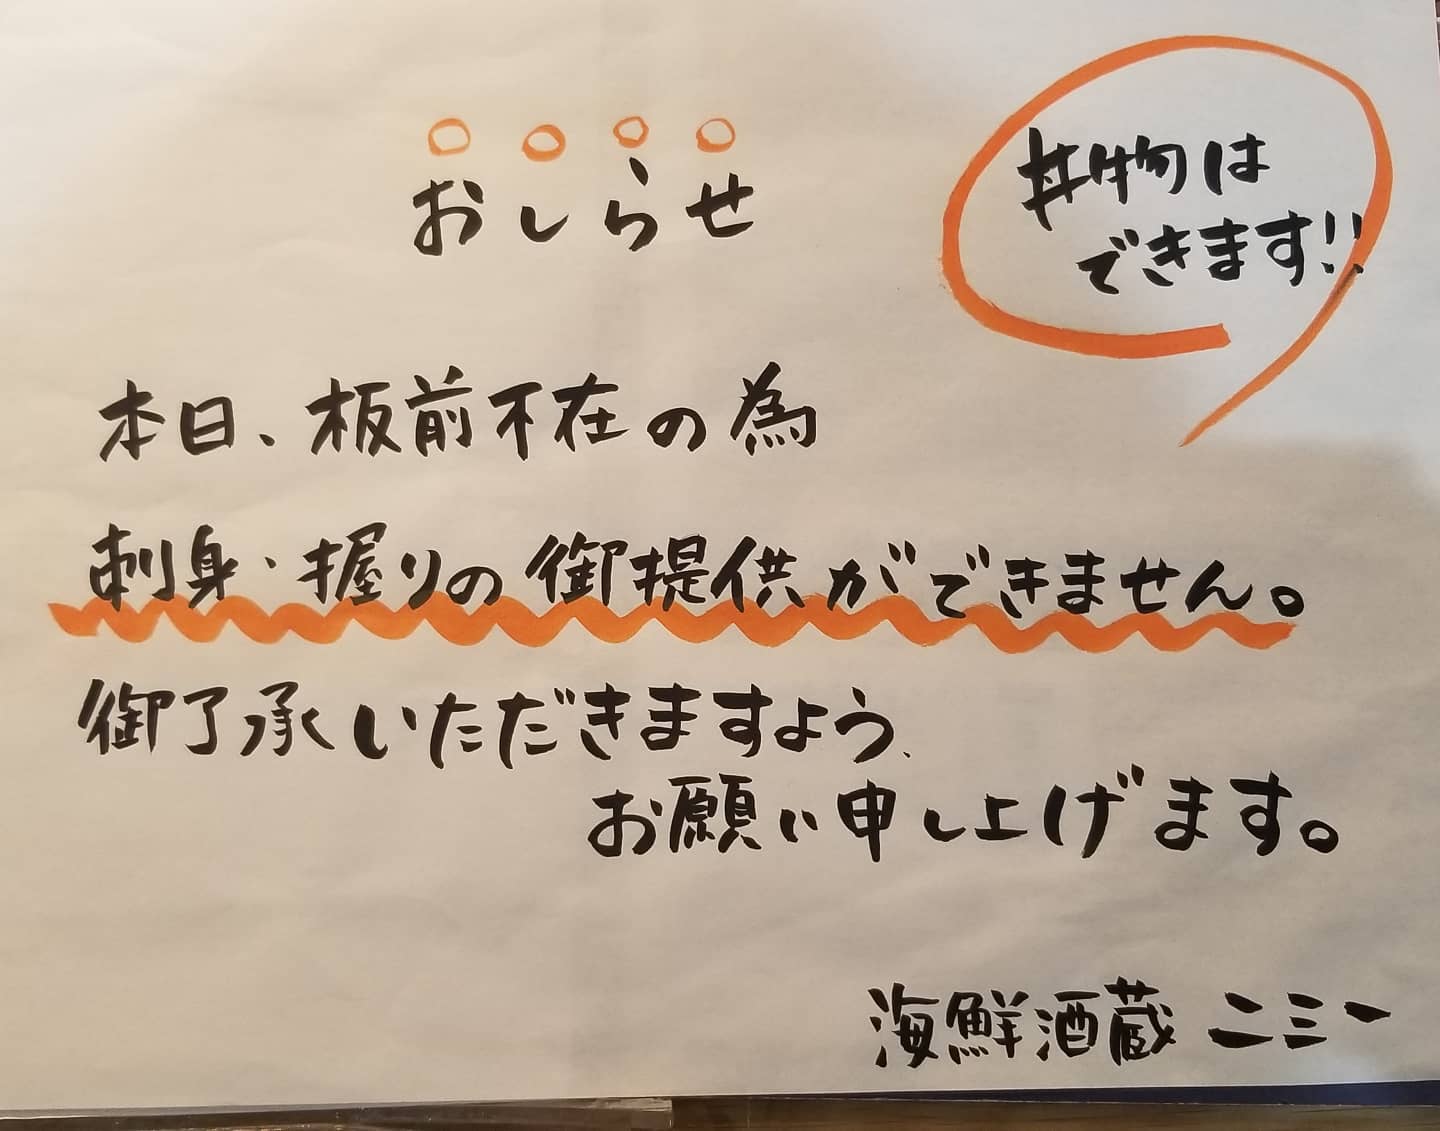 おしらせ
丼物は
できます!!
本日、板前不在の為
刺身・握りの御提供ができません。
御了承いただきますよう、
お願い申し上げます。
海鮮酒蔵 二三一